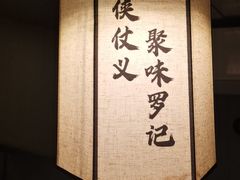 侠仗义
聚味罗记